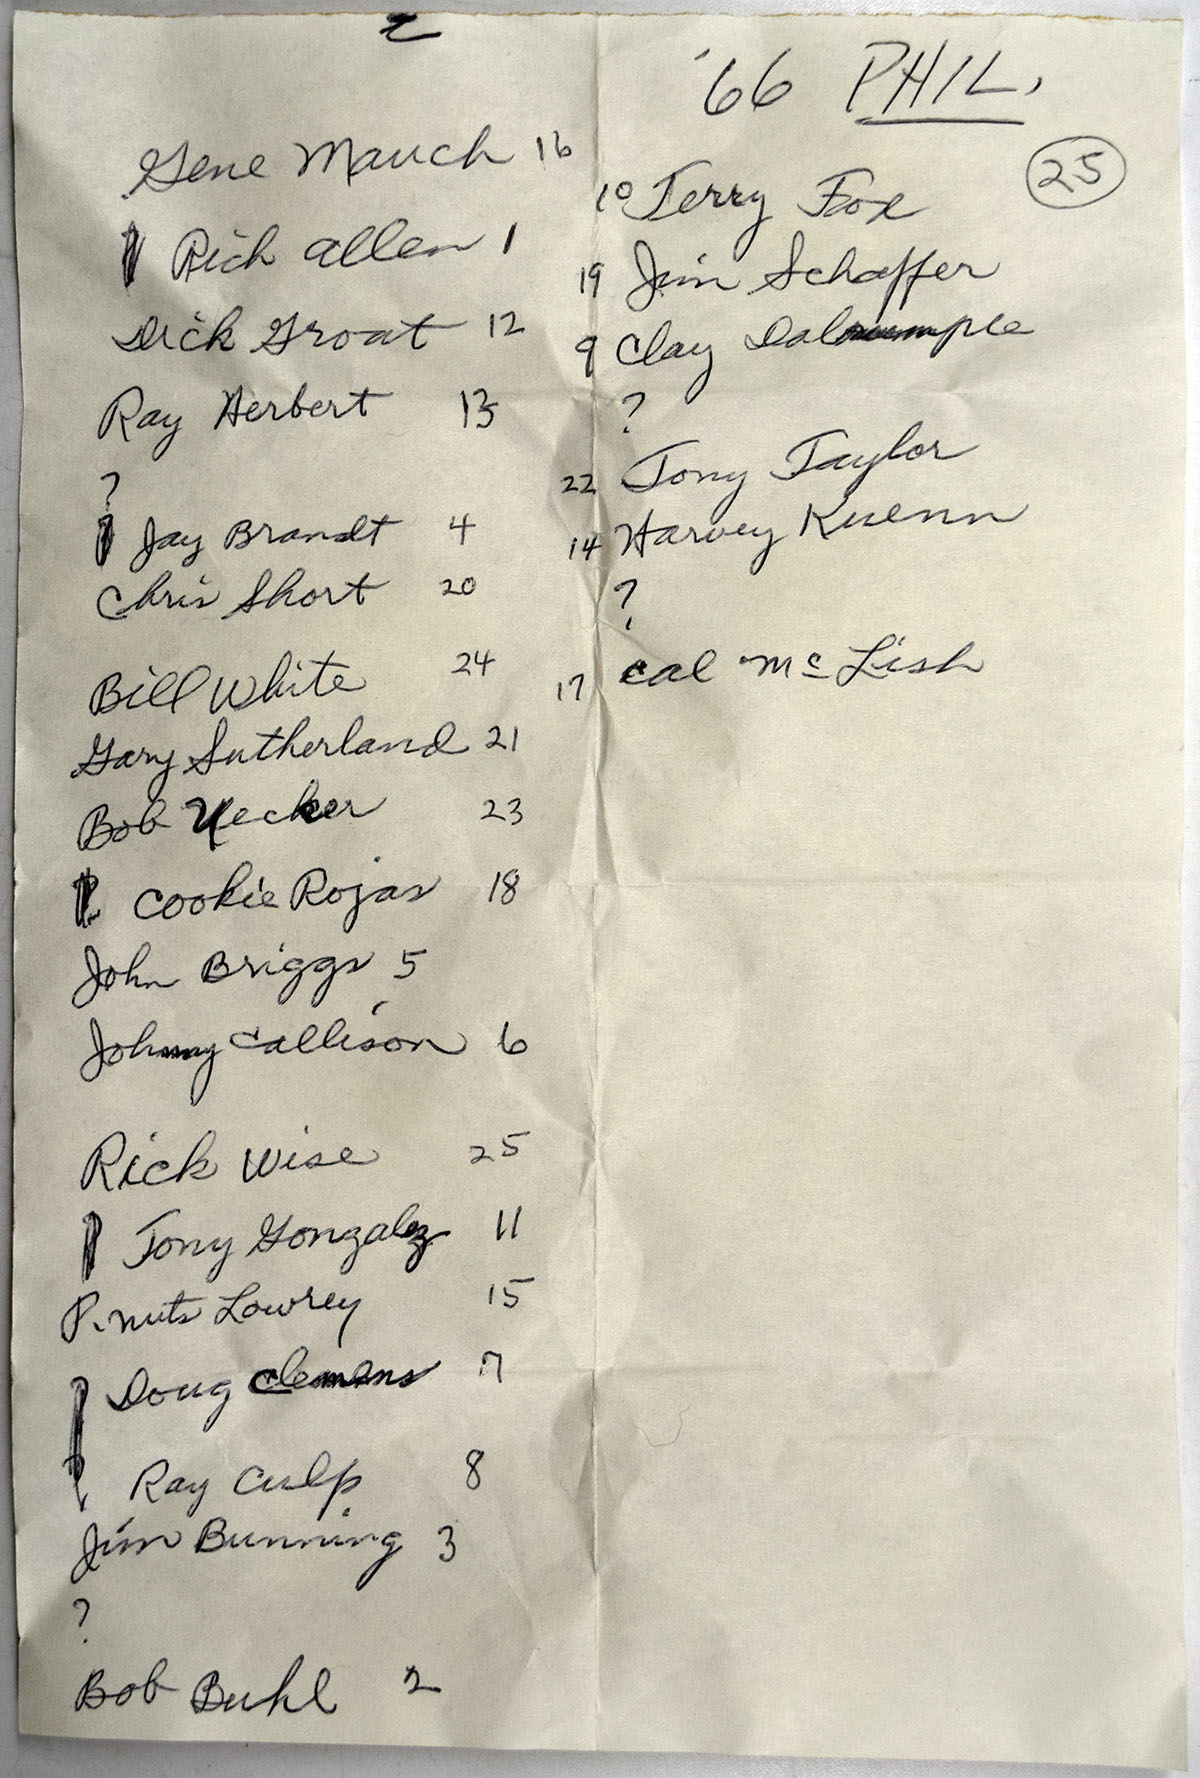 '66 PHIL.
25
Gene Mauch 16
Rich Allen 1
Dick Groat 12
Ray Herbert 13
?
Jay Brandt 4
Chris Short 20
Bill White 24
Gary Sutherland 21
Bob Uecker 23
Cookie Rojas 18
John Briggs 5
Johnny Callison 6
Rick Wise 25
Tony Gonzalez 11
P.nuts Lowrey 15
Doug Clemens 7
Ray Culp 8
Jim Bunning 3
?
Bob Buhl 2
10 Terry Fox
19 Jim Schaffer
9 Clay Dalrumple
?
22 Tony Taylor
14 Harvey Kuenn
?
17 Cal McLish